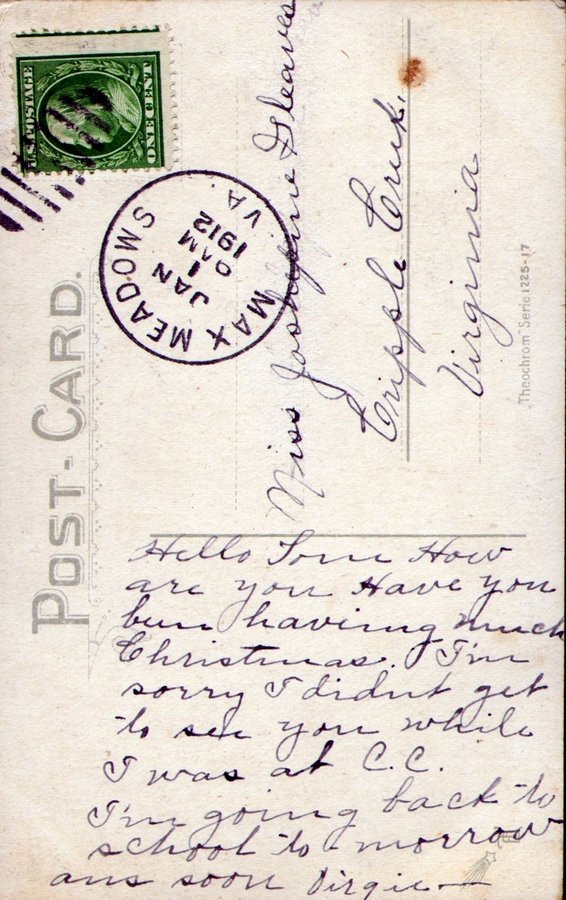 U.S. POSTAGE
ONE CENT
MAX MEADOWS
JAN
1
9 AM
1912
VA.
POST-CARD.
Miss Josephine Gleaves
Cripple Creek,
Virginia
"Theochrom" Serie 1225-17
Hello How
are you Have you
been having much
Christmas. I'm
sorry I didnt get
to see you while
I was at C.C.
I'm going back to
school to-morrow
ans soon Virgie